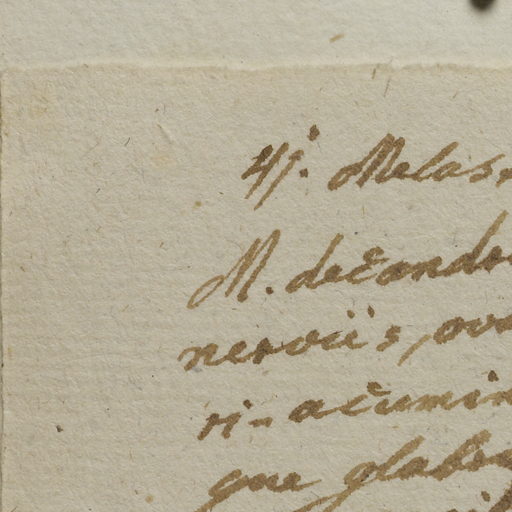 4j. Melas
M. decand
nerviis, ov
ri-acumin
que glab